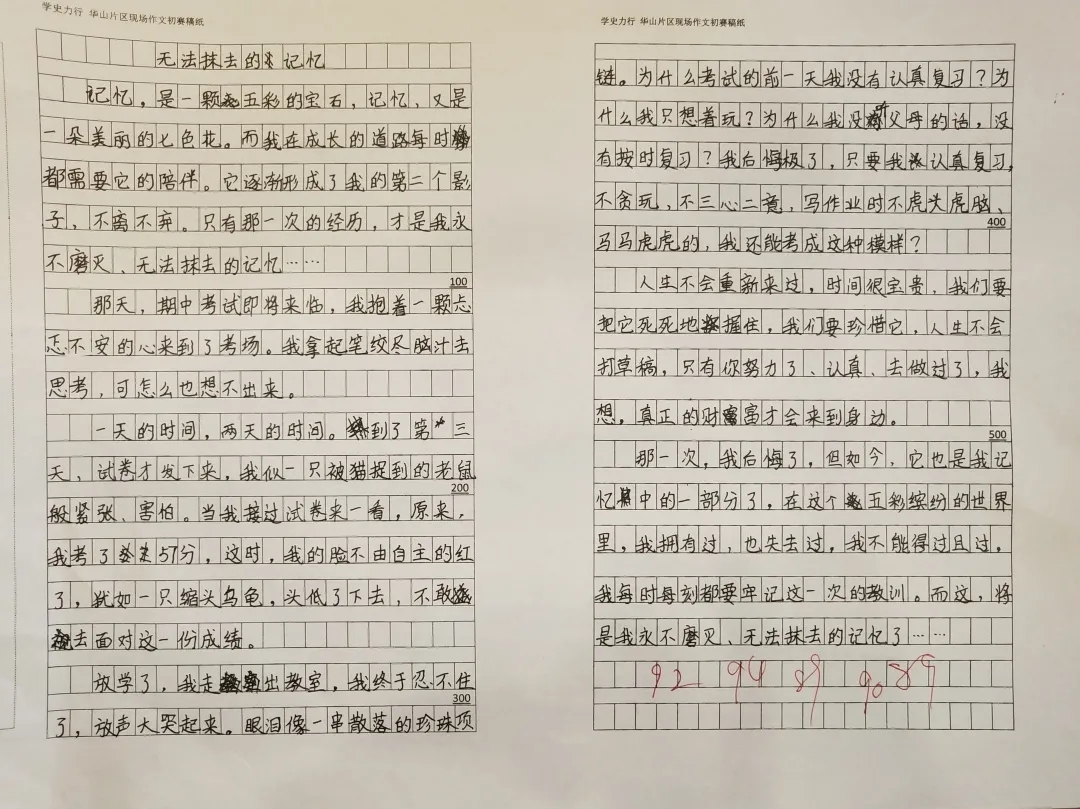 学史力行 华山片区现场作文初赛稿纸
无法抹去的记忆
记忆，是一颗五彩的宝石，记忆，又是
一朵美丽的七色花。而我在成长的道路每时
都需要它的陪伴。它逐渐形成了我的第二个影
子，不离不弃。只有那一次的经历，才是我永
不磨灭、无法抹去的记忆……
100
那天，期中考试即将来临，我抱着一颗忐
忑不安的心来到了考场。我拿起笔绞尽脑汁去
思考，可怎么也想不出来。
一天的时间，两天的时间。到了第三
天，试卷才发下来，我似一只被猫捉到的老鼠
200
般紧张、害怕。当我接过试卷来一看，原来，
我考了57分，这时，我的脸不由自主的红
了，犹如一只缩头乌龟，头低了下去，不敢
去面对这一份成绩。
放学了，我走出教室，我终于忍不住
300
了，放声大哭起来。眼泪像一串散落的珍珠项
学史力行 华山片区现场作文初赛稿纸
链。为什么考试的前一天我没有认真复习？为
什么我只想着玩？为什么我没听父母的话，没
有按时复习？我后悔极了，只要我认真复习，
不贪玩，不三心二意，写作业时不虎头虎脑、
400
马马虎虎的，我还能考成这种模样？
人生不会重新来过，时间很宝贵，我们要
把它死死地握住，我们要珍惜它，人生不会
打草稿，只有你努力了、认真、去做过了，我
想，真正的财富才会来到身边。
500
那一次，我后悔了，但如今，它也是我记
忆中的一部分了，在这个五彩缤纷的世界
里，我拥有过，也失去过，我不能得过且过，
我每时每刻都要牢记这一次的教训。而这，将
是我永不磨灭、无法抹去的记忆了……
92 94 89 90 89